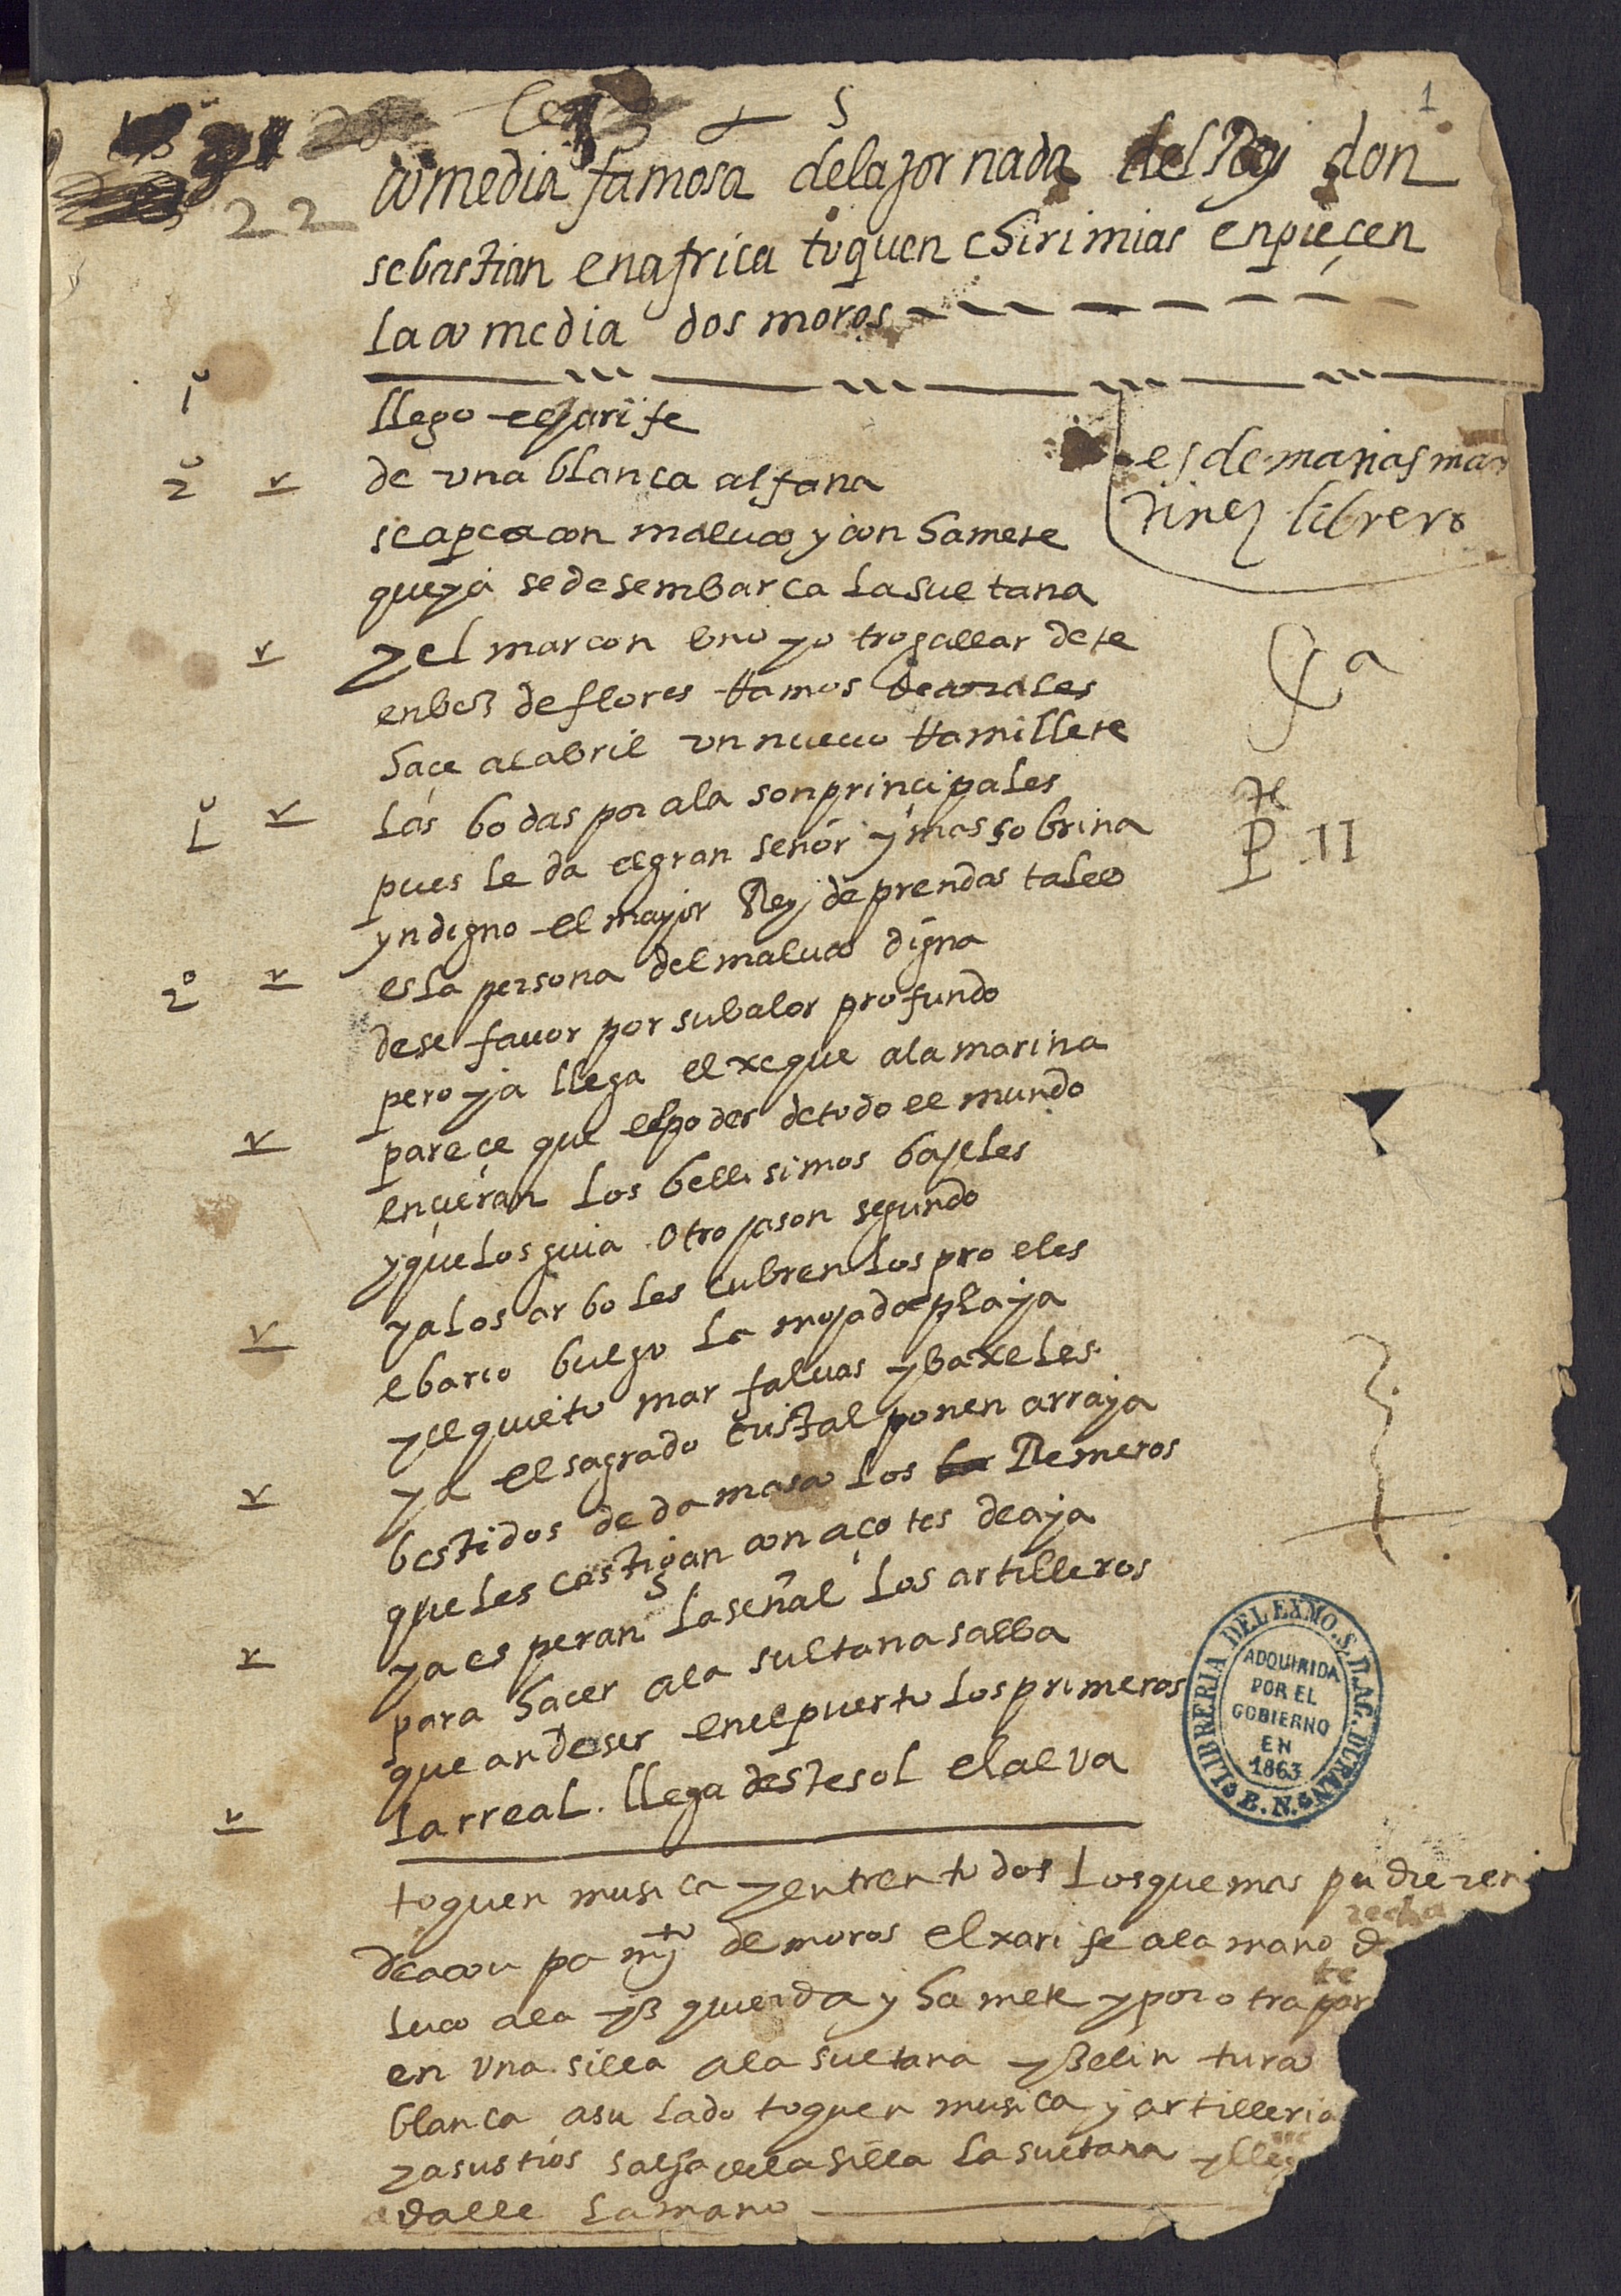 1
22
comedia famosa dela jornada del Rey don
sebastian en africa toquen chirimias enpieçen
La comedia dos moros
1º llego el jarife
2º r de vna blanca alfana
se apea con maluco y con hamete
que ya se desembarca la sultana
r y el mar con
en bez de flores rramos de corales
haçe al abril vn nueuo rramillete
1º r las bodas por ala son prinçipales
pues le da el gran señor y mas sobrina
yndigno el mayor Rey de prendas tales
2º r es la persona del maluco digna
dese favor por su balor profundo
pero ya llega el xeque ala marina
r pareçe que el poder de todo el mundo
ençieran los bellisimos bajeles
y que los guia otro jason segundo
r ya los arboles cubren los proeles
el barco la mojada playa
y el quieto mar faluas y baxeles
r ya el sagrado cristal ponen a rraya
bestidos de damasco los Remeros
que les castigan con açotes de aya
r ya esperan la señal los artilleros
para hacer ala sultana salba
que an de ser en el puerto los primeros
r la rreal llega deste sol el alva
toquen musica y entren todos los que mas pudieren
de aconpamto de moros el xarife ala mano derecha
luco ala yzquierda y hamete y por otra parte
en vna silla ala sultana y zelin
blanca a su lado toquen musica y artilleria
y a sus tios salga de la silla la sultana y llegue
dalle la mano
es de matias mar
tinez librero
Ca
P. II
LIBRERIA DEL EXMO. S. D. AG. DURAN
B. N.
ADQUIRIDA
POR EL
GOBIERNO
EN
1863